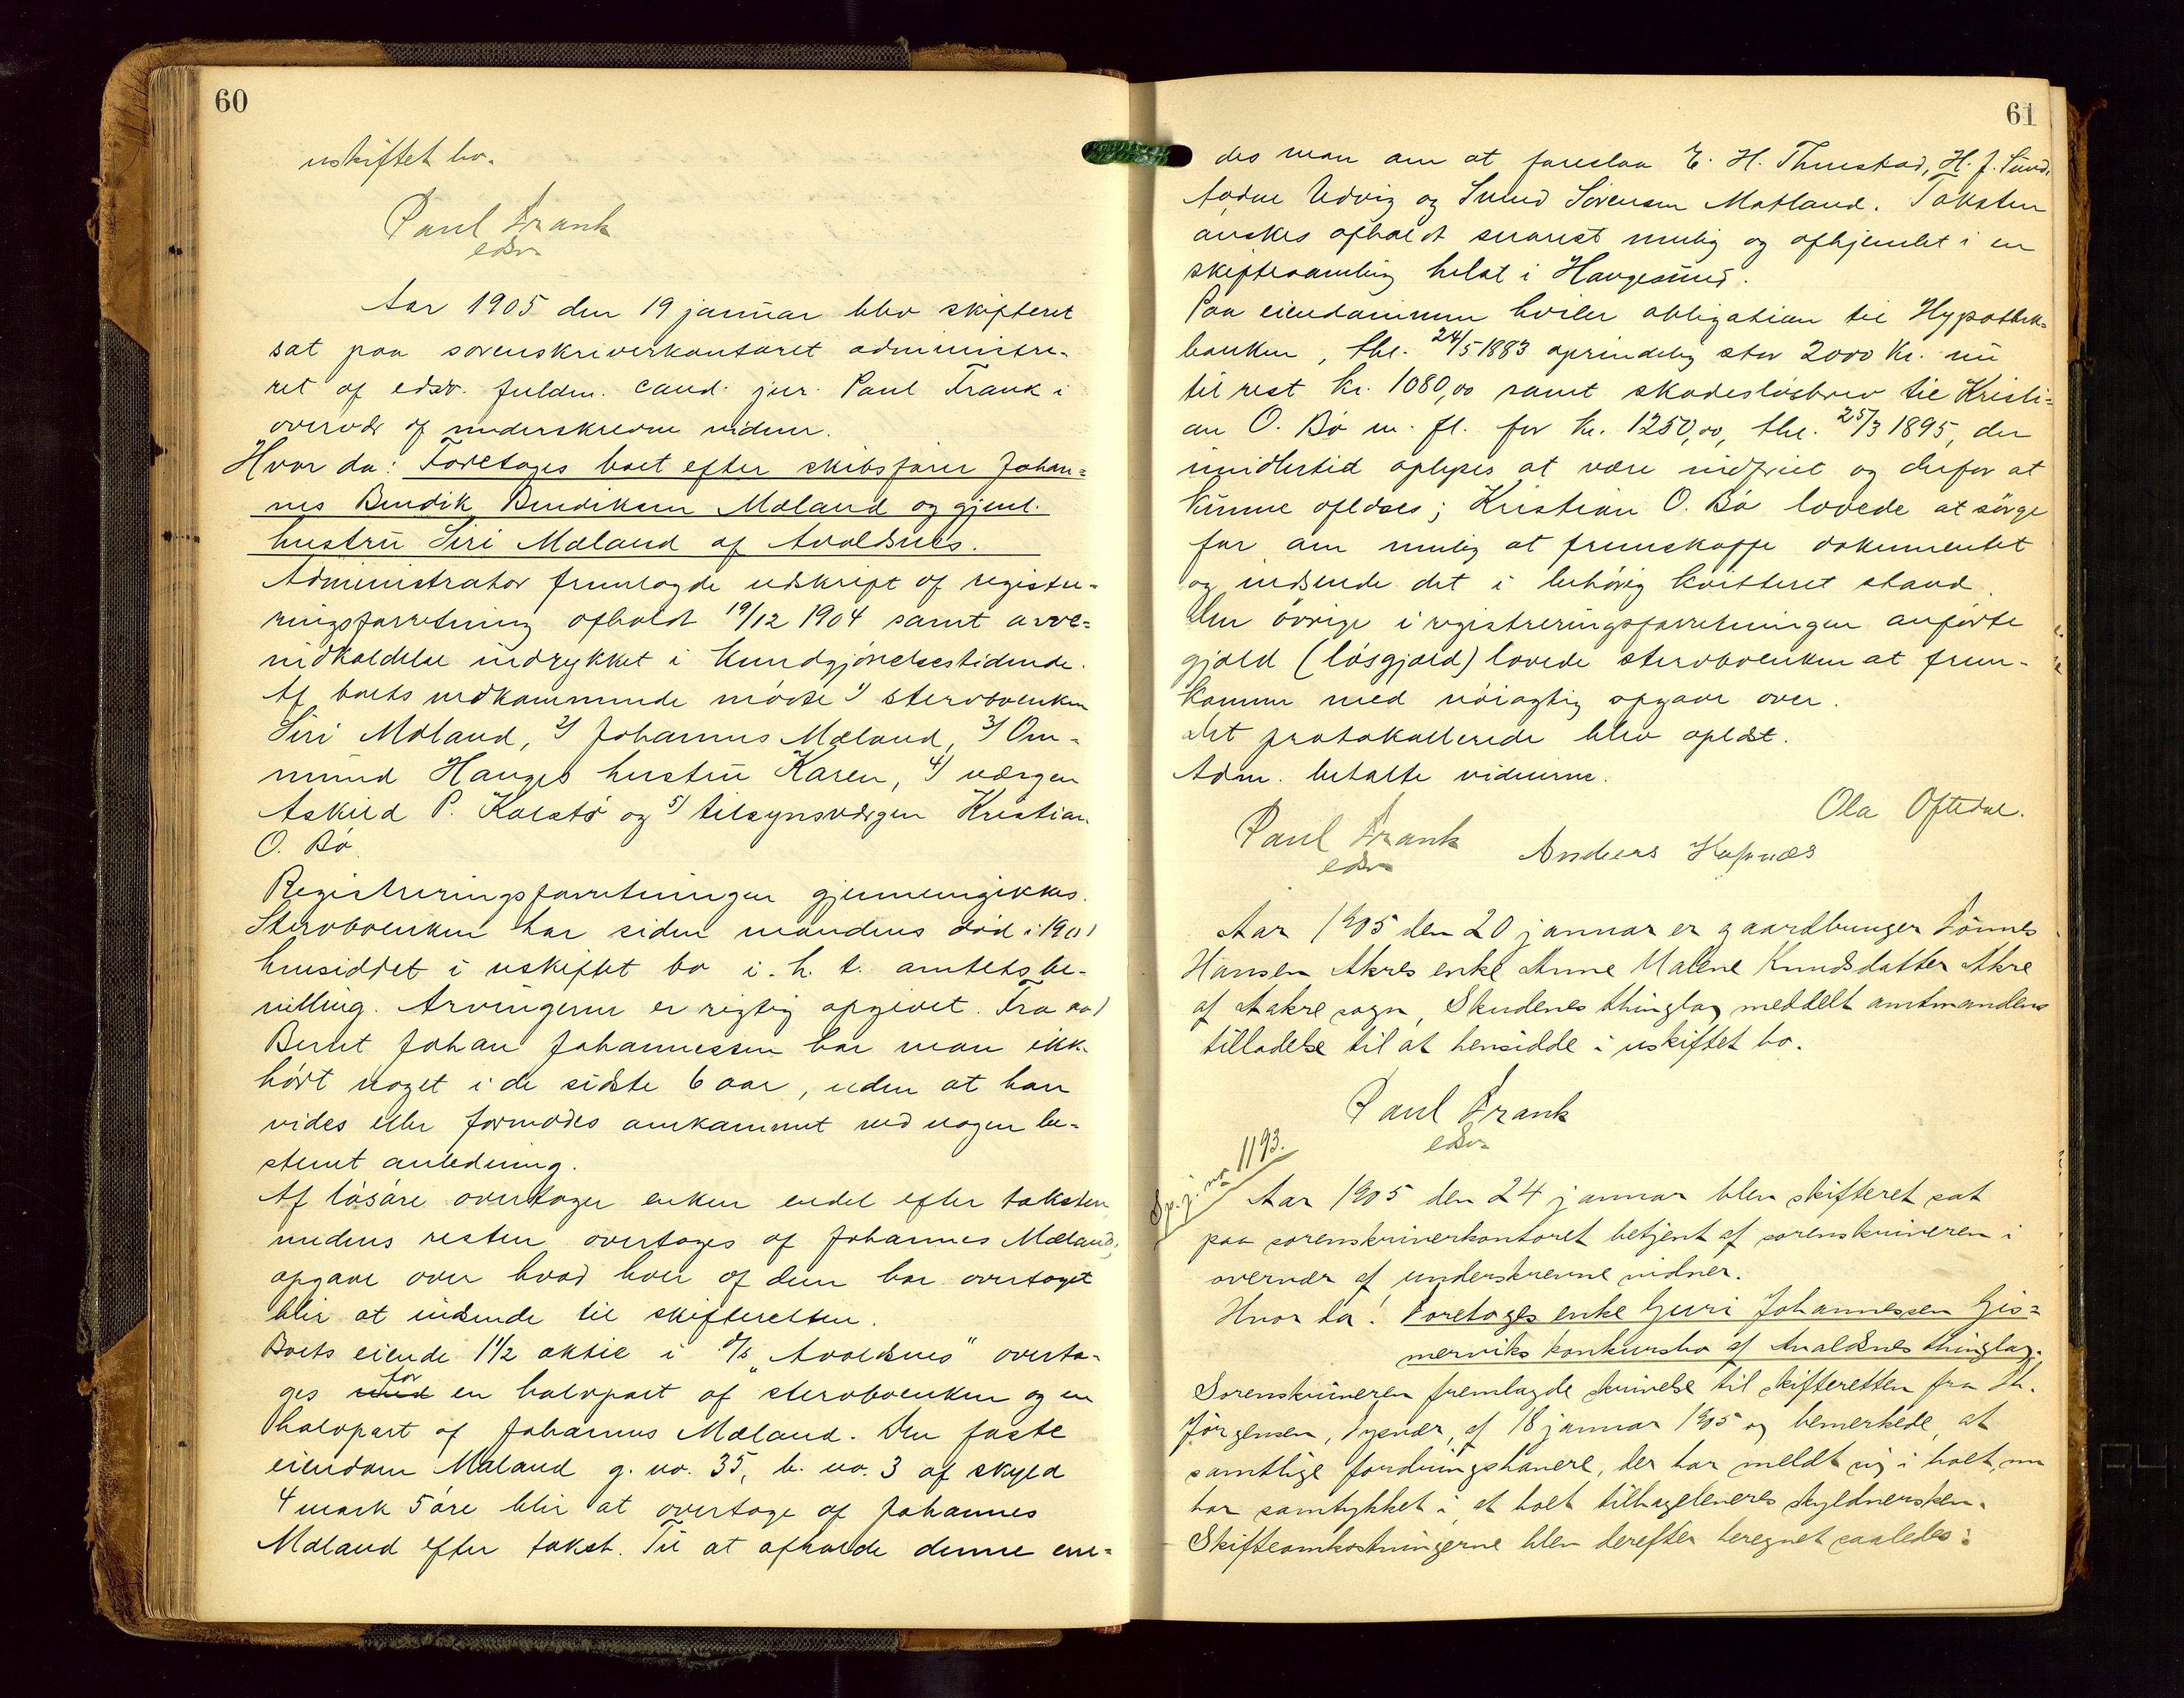 60
uskiftet bo.
Paul Frank
edsv.
Aar 1905 den 19 januar blev skifteret
sat paa sorenskriverkontoret administre-
ret af edsv. fuldm. cand. jur. Paul Frank i
overvær af underskrevne vidner.
Hvor da: Foretages boet efter skibsfører Johan=
nes Bendik Bendiksen Mæland og gjenl.
hustru Siri Mæland af Avaldsnes.
Administrator fremlagde udskrift af registre-
ringsforretning afholdt 19/12 1904 samt arve=
indkaldelse indrykket i Kundgjørelsestidende.
Af boets vedkommende mødte 1) stervboenken
Siri Mæland, 2) Johannes Mæland, 3) Om-
mund Hauges hustru Karen, 4) værgen
Askild P. Kolstø og 5) tilsynsværgen Kristian
O. Bø.
Registreringsforretningen gjennemgikkes.
Stervboenken har siden mandens død i 1901
hensiddet i uskiftet bo i. h. t. amtets be-
villing. Arvingerne er rigtig opgivet. Fra
Bernt Johan Johannessen har man ikk
hørt noget i de sidste 6 aar, uden at han
vides eller formodes omkommet ved nogen be-
stemt anledning.
Af løsøre overtager enken endel efter taksten,
medens resten overtages af Johannes Mæland;
opgave over hvad hver af dem har overtaget
blir at indsende til skifteretten.
Boets eiende 1 1/2 aktie i d/s "Avaldsnes" overta-
ges for en halvpart af stervboenken og en
halvpart af Johannes Mæland. Den faste
eiendom Mæland g. no. 35, b. no. 3 af skyld
4 mark 5 øre blir at overtage af Johannes
Mæland efter takst. Til at afholde denne ene-
61
des man om at foreslaa E. H. Thuestad, H. J. Sund,
Aadne Udvig og Svend Sørensen Matland. Taksten
ønskes afholdt snarest mulig og afhjemlet i en
skiftesamling helst i Haugesund.
Paa eiendommen hviler obligation til Hypothek=
banken, thl. 24/5 1883 oprindelig stor 2000 Kr. nu
til rest kr. 1080,00 samt skadesløsbrev til Kristi=
an O. Bø m. fl. for kr. 1250,00, thl. 25/3 1895, der
imidlertid oplyses at være indfriet og derfor at
kunne aflæses; Kristian O. Bø lovede at sørge
for om mulig at fremskaffe dokumentet
og indsende det i behørig kvitteret stand.
Den øvrige i registreringsforretningen anførte
gjæld (løsgjæld) lovede stervboenken at frem-
komme med nøiagtig opgave over.
Det protokollerede blev oplæst.
Adm. betalte vidnerne.
Ola Oftedal.
Paul Frank
edsv.
Anders Høpnæs
Aar 1905 den 20 januar er gaardbruger Tønnes
Hansen Akres enke Anne Malene Knudsdatter Akre
af Aakre sogn, Skudenes thinglag meddelt amtmandens
tilladelse til at hensidde i uskiftet bo.
Paul Frank
edsv.
Sp. j. no 1193.
Aar 1905 den 24 januar blev skifteret sat
paa sorenskriverkontoret betjent af sorenskriveren i
overvær af underskrevne vidner.
Hvor da! Foretages enke Guri Johannessen Gis=
merviks konkursbo af Avaldsnes thinglag.
Sorenskriveren fremlagde skrivelse til skifteretten fra Th.
Jørgensen, Tysvær, af 18 januar 1905 og bemerkede, at
samtlige fordringshavere, der har meldt sig i boet, nu
har samtykket i, at boet tilbageleveres skyldnersken.
Skifteomkostningerne blev derefter beregnet saaledes: